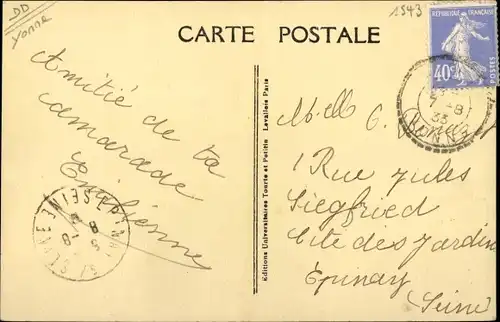 DD
Yonne
1543
CARTE POSTALE
REPUBLIQUE FRANÇAISE
40c
POSTES
Amitié de ta
camarade
Emilienne
Editions Universitaires Tourte et Petitin Levallois Paris
7-8
33
YONNE
Melle G.
1 Rue Jules
Siegfried
Cité des Jardins
Épinay
(Seine)
ST
SEINE